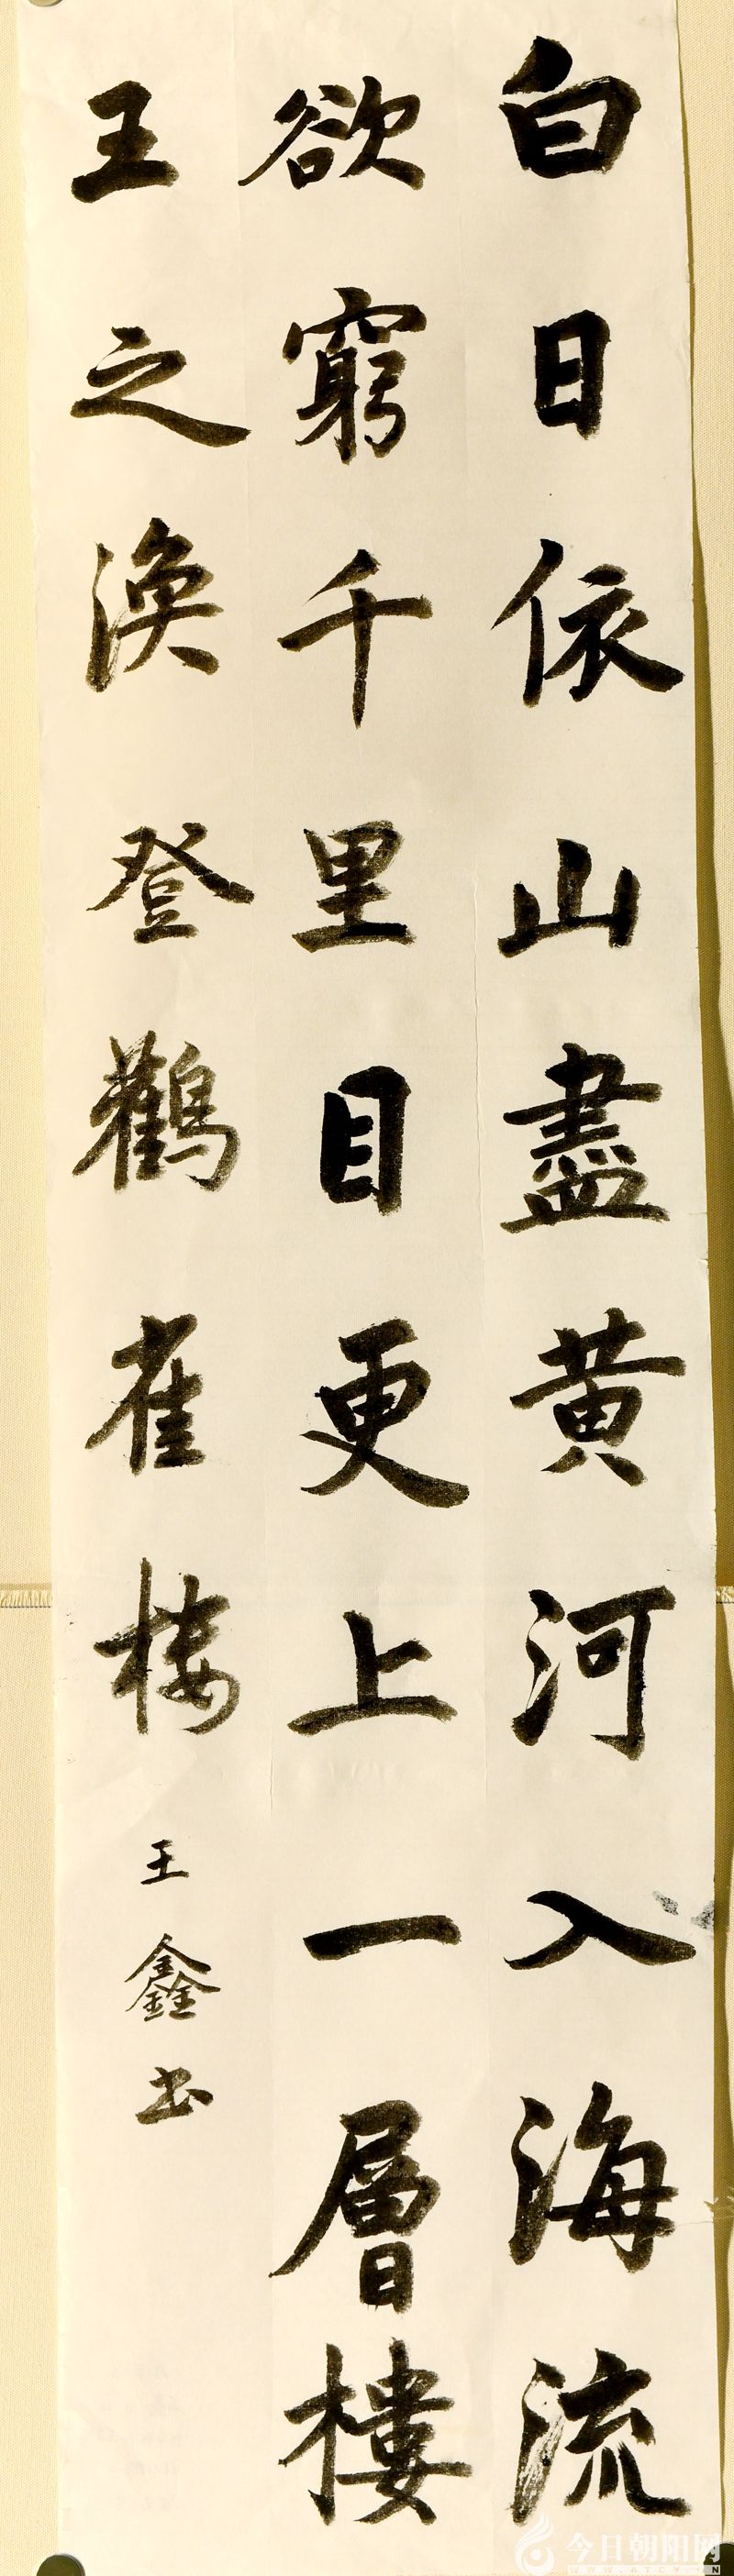 白日依山盡黄河入海流
欲窮千里目更上一層樓
王之渙登鸛雀楼
王鑫书
今日朝阳网